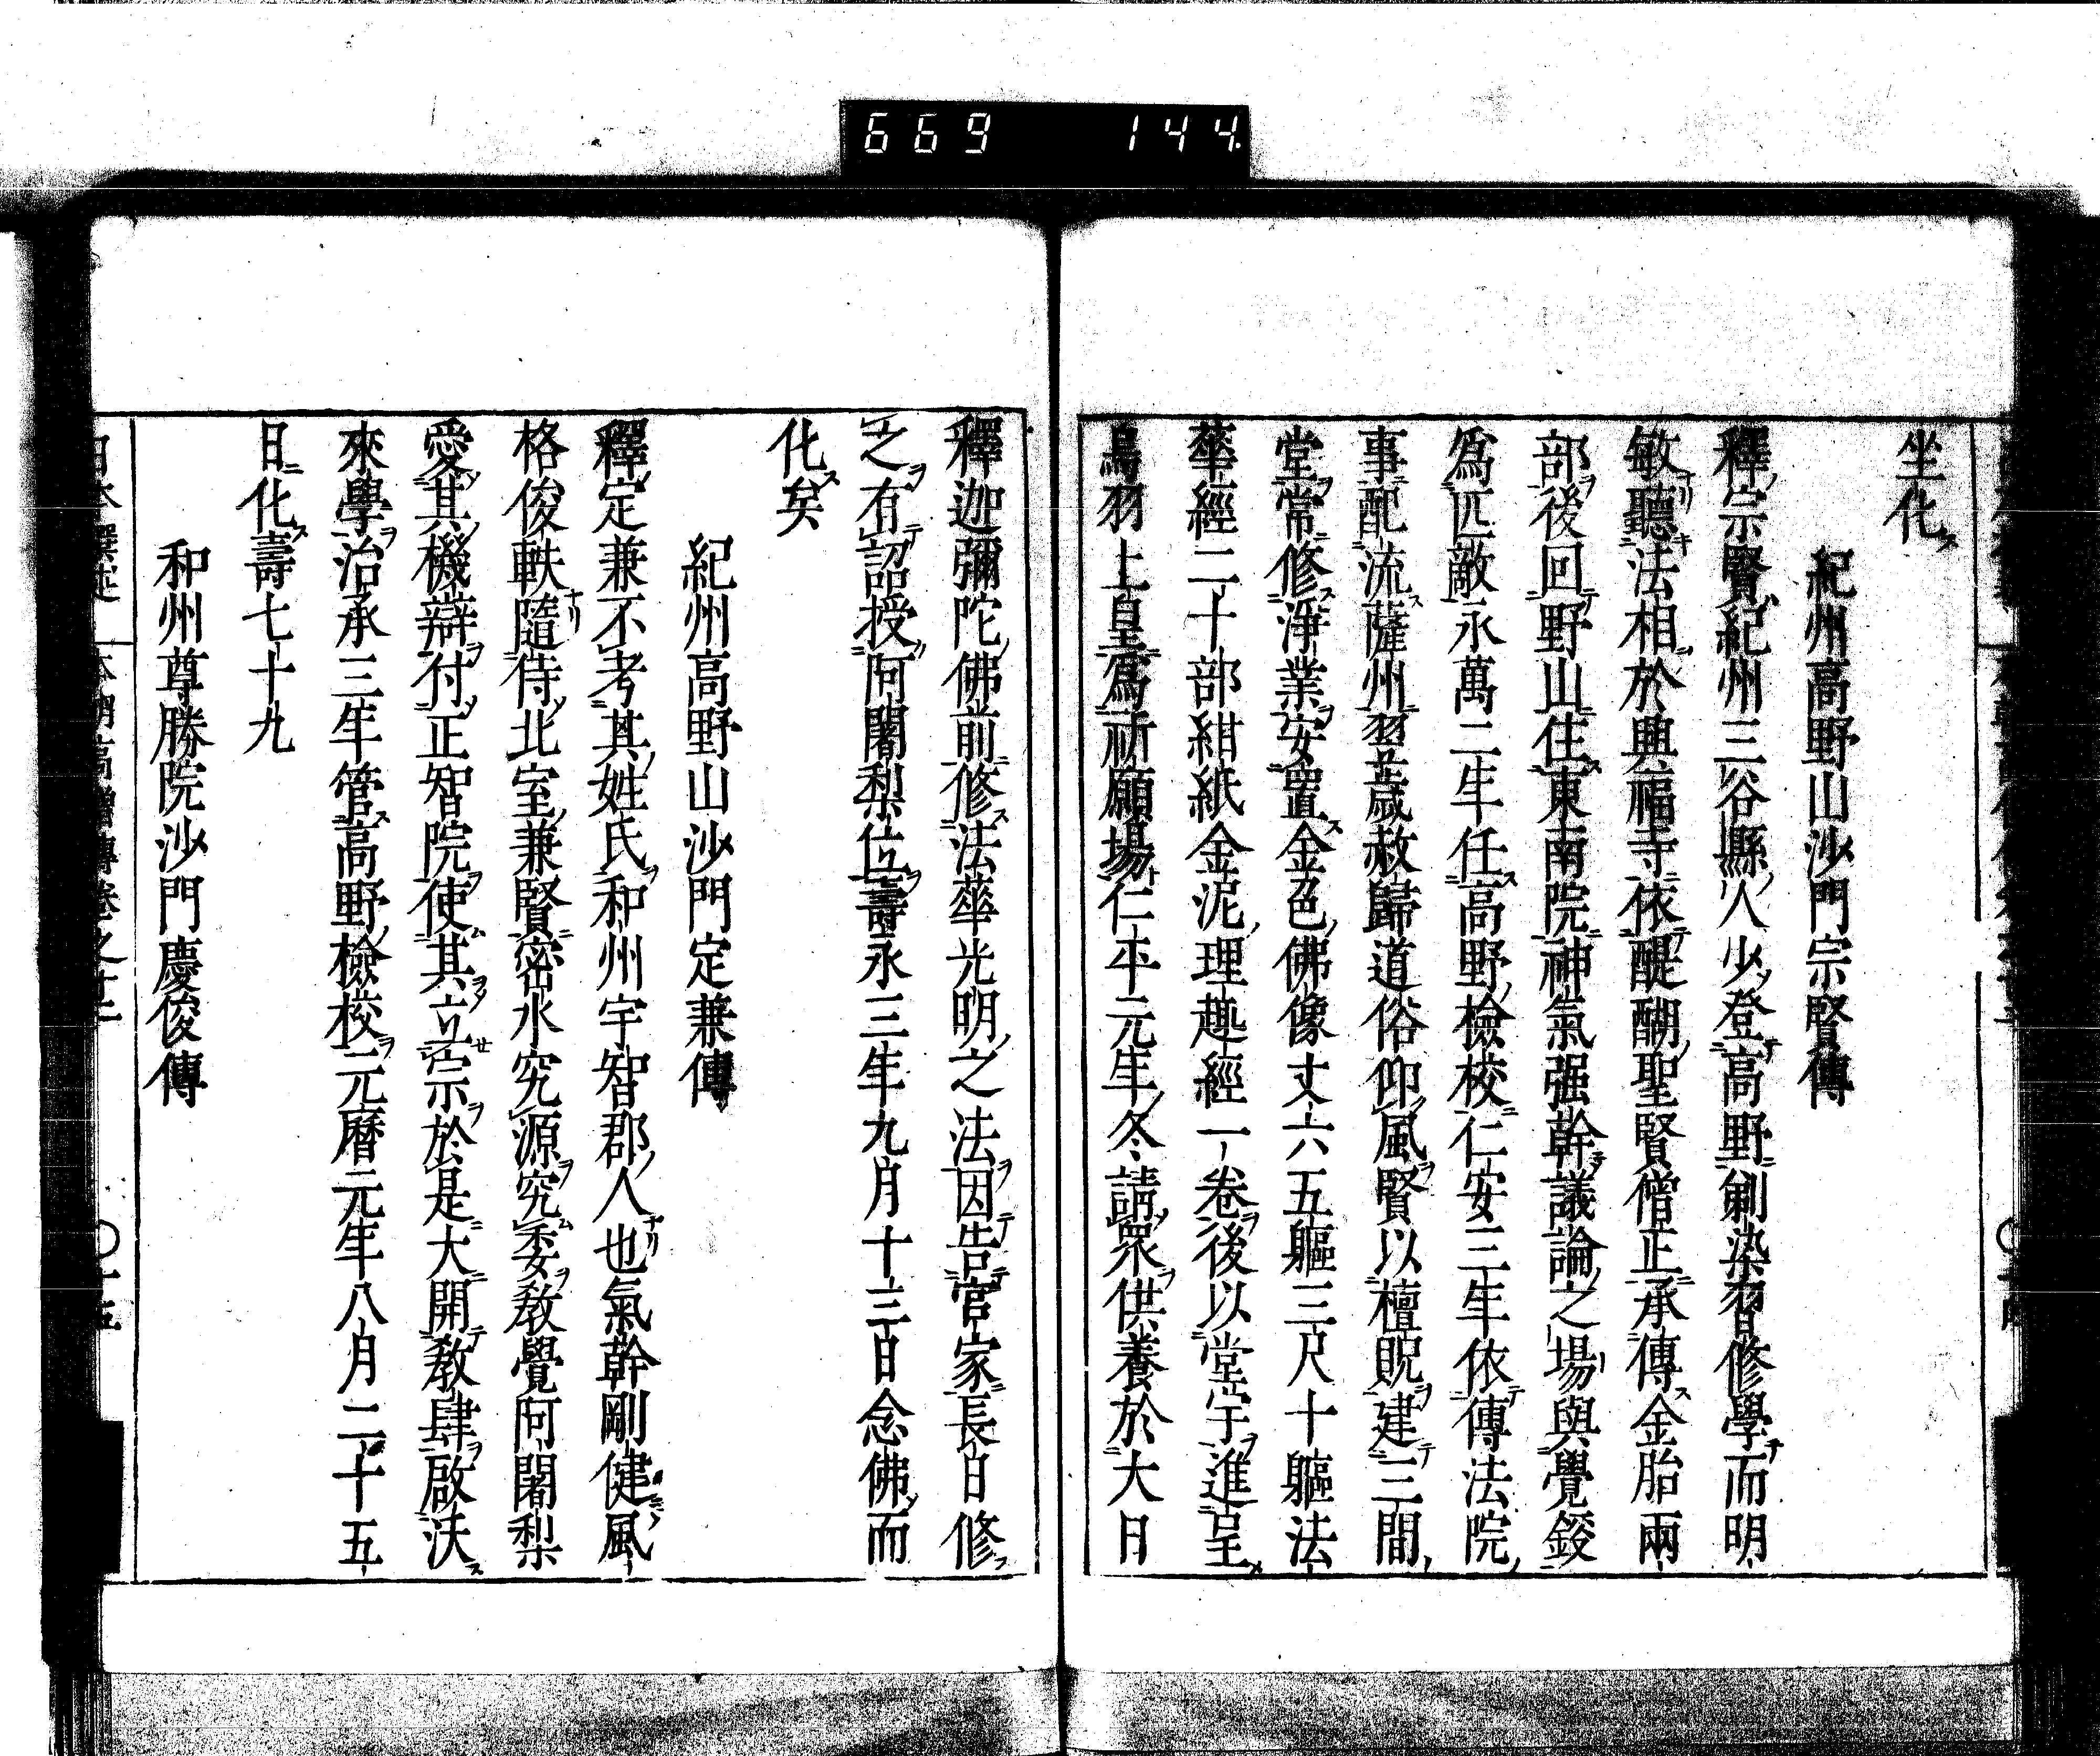 669 144
坐化
紀州高野山沙門宗賢傳
釋宗賢紀州三谷縣人少登高野剃染習修學而明
敏聽法相於興福寺依醍醐聖賢僧正承傳金胎兩
部後回野山住東南院神氣强幹議論之場與覺鑁
爲匹敵永萬二年任高野檢校仁安三年依傳法院
事配流薩州翌歲赦歸道俗仰風賢以檀貺建三間
堂常修淨業安置金色佛像丈六五軀三尺十軀法
華經二十部紺紙金泥理趣經一卷後以堂宇進呈
鳥羽上皇爲祈願場仁平元年冬請衆供養於大日
釋迦彌陀佛前修法華光明之法因告官家長日修
之有詔授阿闍梨位壽永三年九月十三日念佛而
化矣
紀州高野山沙門定兼傳
釋定兼不考其姓氏和州宇智郡人也氣幹剛健風
格俊軼隨侍北室兼賢密水究源究委敎覺阿闍梨
愛其機辯付正智院使其立宗於是大開敎肆啟沃
來學治承三年管高野檢校元曆元年八月二十五
日化壽七十九
和州尊勝院沙門慶俊傳
本朝高僧傳卷之十二